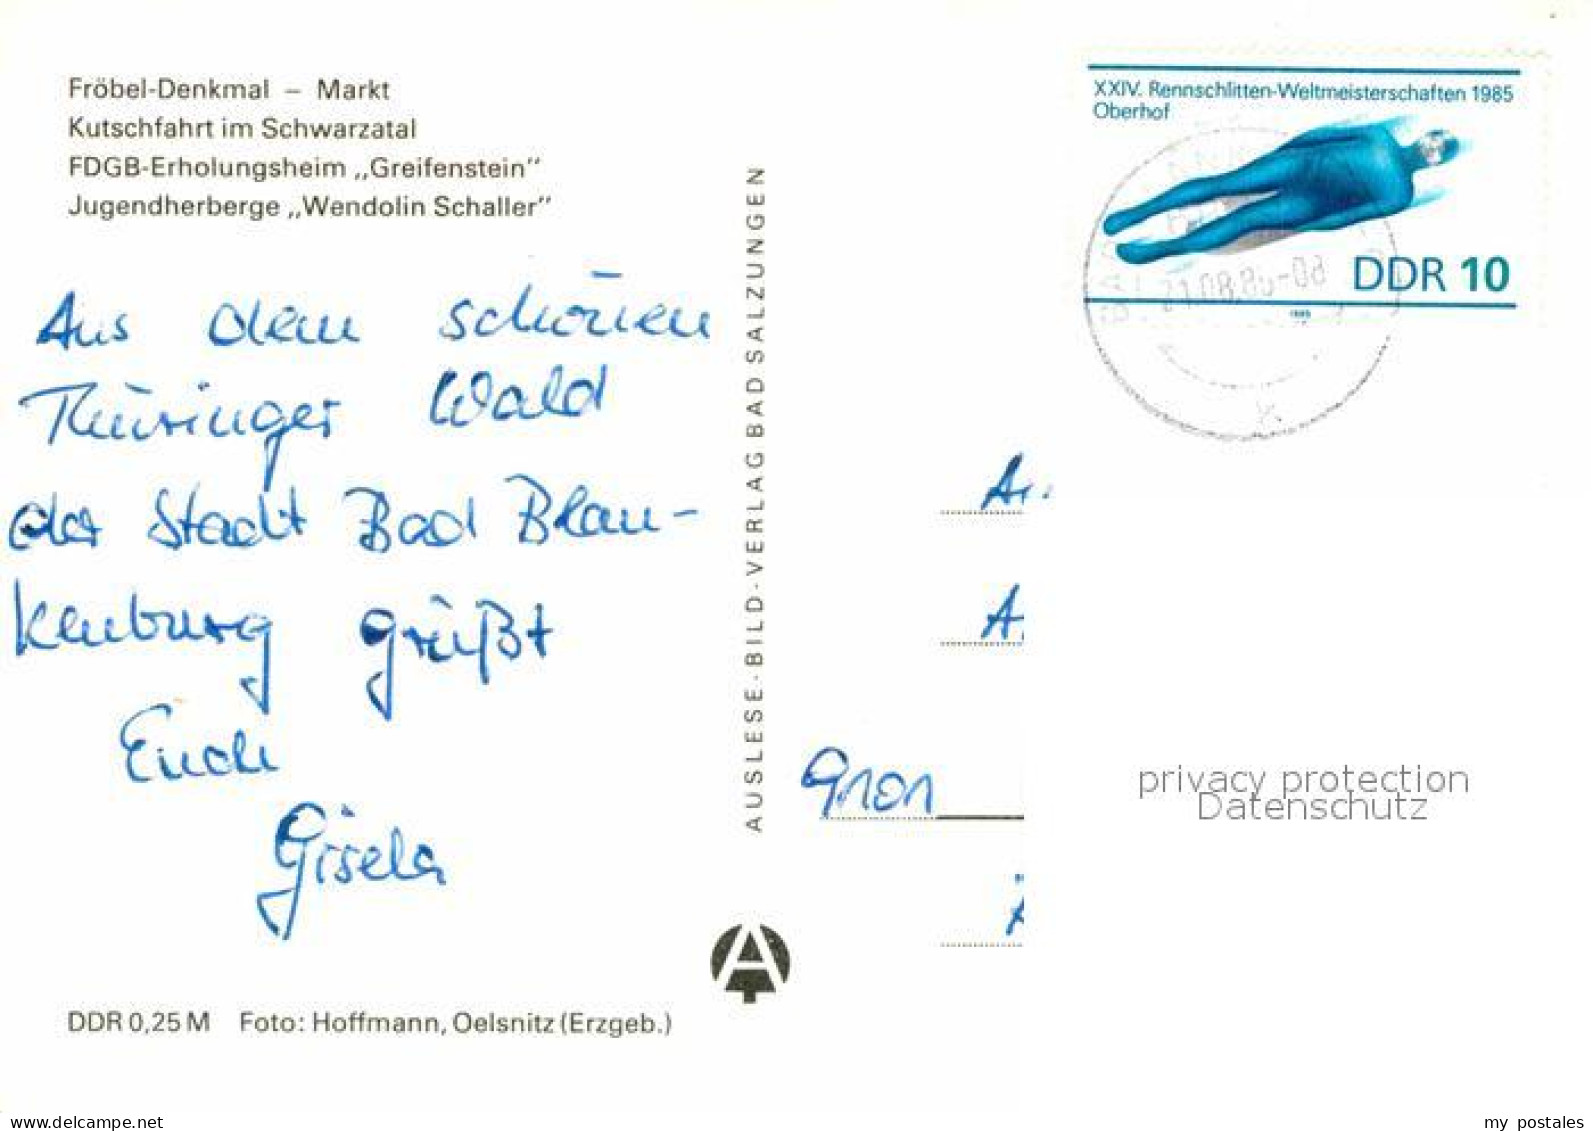 Fröbel-Denkmal – Markt
Kutschfahrt im Schwarzatal
FDGB-Erholungsheim „Greifenstein"
Jugendherberge „Wendolin Schaller"
Aus dem schönen
Thüringer Wald
der Stadt Bad Blan-
kenburg grüßt
Euch
Gisela
DDR 0,25 M Foto: Hoffmann, Oelsnitz (Erzgeb.)
AUSLESE-BILD-VERLAG BAD SALZUNGEN
A
XXIV. Rennschlitten-Weltmeisterschaften 1985
Oberhof
DDR 10
1985
9101
privacy protection
Datenschutz
www.delcampe.net
my_postales